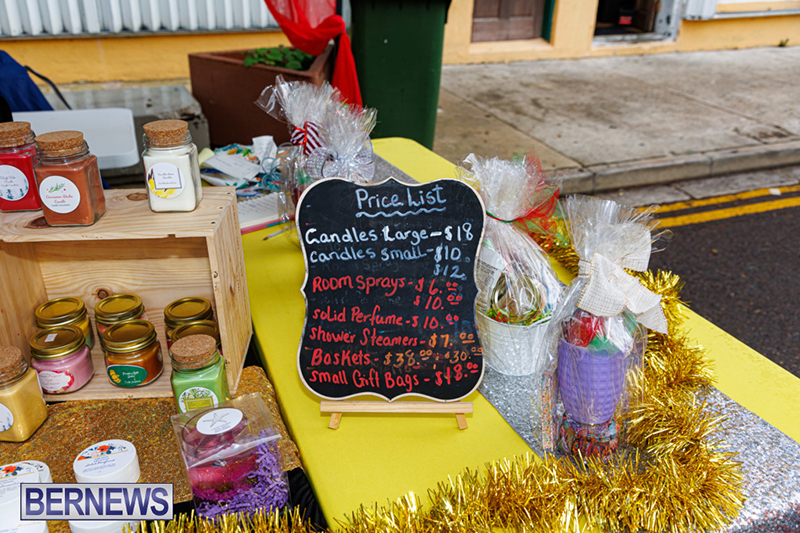 Price List
Candles Large - $18
candles small - $10
$12
ROOM SPRAYS - $6.00
$10.00
solid Perfume - $10.00
shower Steamers - $7.00
Baskets - $38.00
small Gift Bags - $18.00
BERNEWS